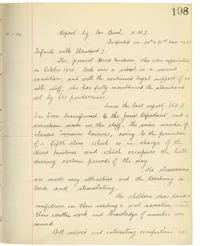 198
Report by Mr. Beech H.M.I.
Inspected on 20th & 21st Nov.
Infants with Standard I.
The present Head Mistress, who was appointed
in October 1920, took over a school in a sound
condition, and with the continued loyal support of an
able staff, she has fully maintained the standard
set by her predecessor.
Since the last report Std. II
has been transferred to the Junior Department, and a
reduction made in the staff; the same number of
classes remain however, owing to the formation
of a fifth class which is in charge of the
Head Mistress and which occupies the hall
during certain periods of the day.
The classrooms
are made very attractive and the teaching is
and stimulating.
The children show
confidence in their reading &
their written work and knowledge of number are
sound.
Well varied and interesting occupations are